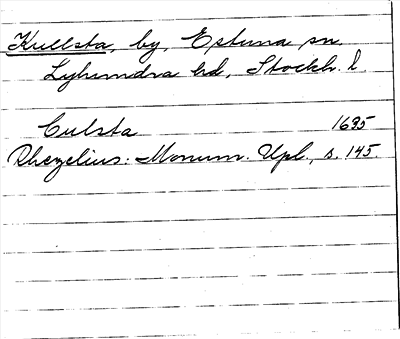 Kullsta, by, Estuna sn.
Lyhundra hd, Stockh. l.
Culsta 1635
Rhezelius: Monum. Upl., s. 145.